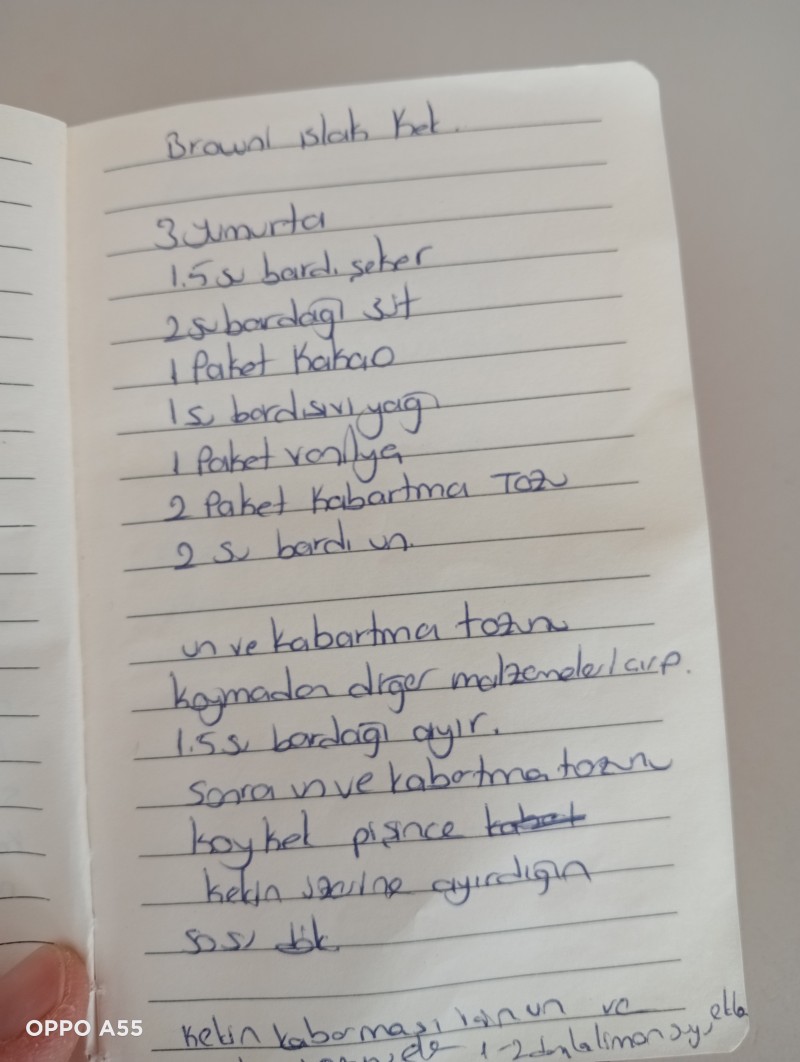 Browni ıslak kek.
3 yumurta
1.5 s bard. şeker
2 s bardağı süt
1 Paket Kakao
1 s bard sıvı yağ
1 Paket vanilya
2 Paket Kabartma Tozu
2 s bardı un.
un ve kabartma tozunu
koymadan diğer malzemeleri çırp.
1.5 s bardağı ayır.
Sonra un ve kabartma tozunu
koy kek pişince
kekin üzerine ayırdığın
sosu dök.
kekin kabarması için un ve
1-2 damla limon suyu ekle
OPPO A55